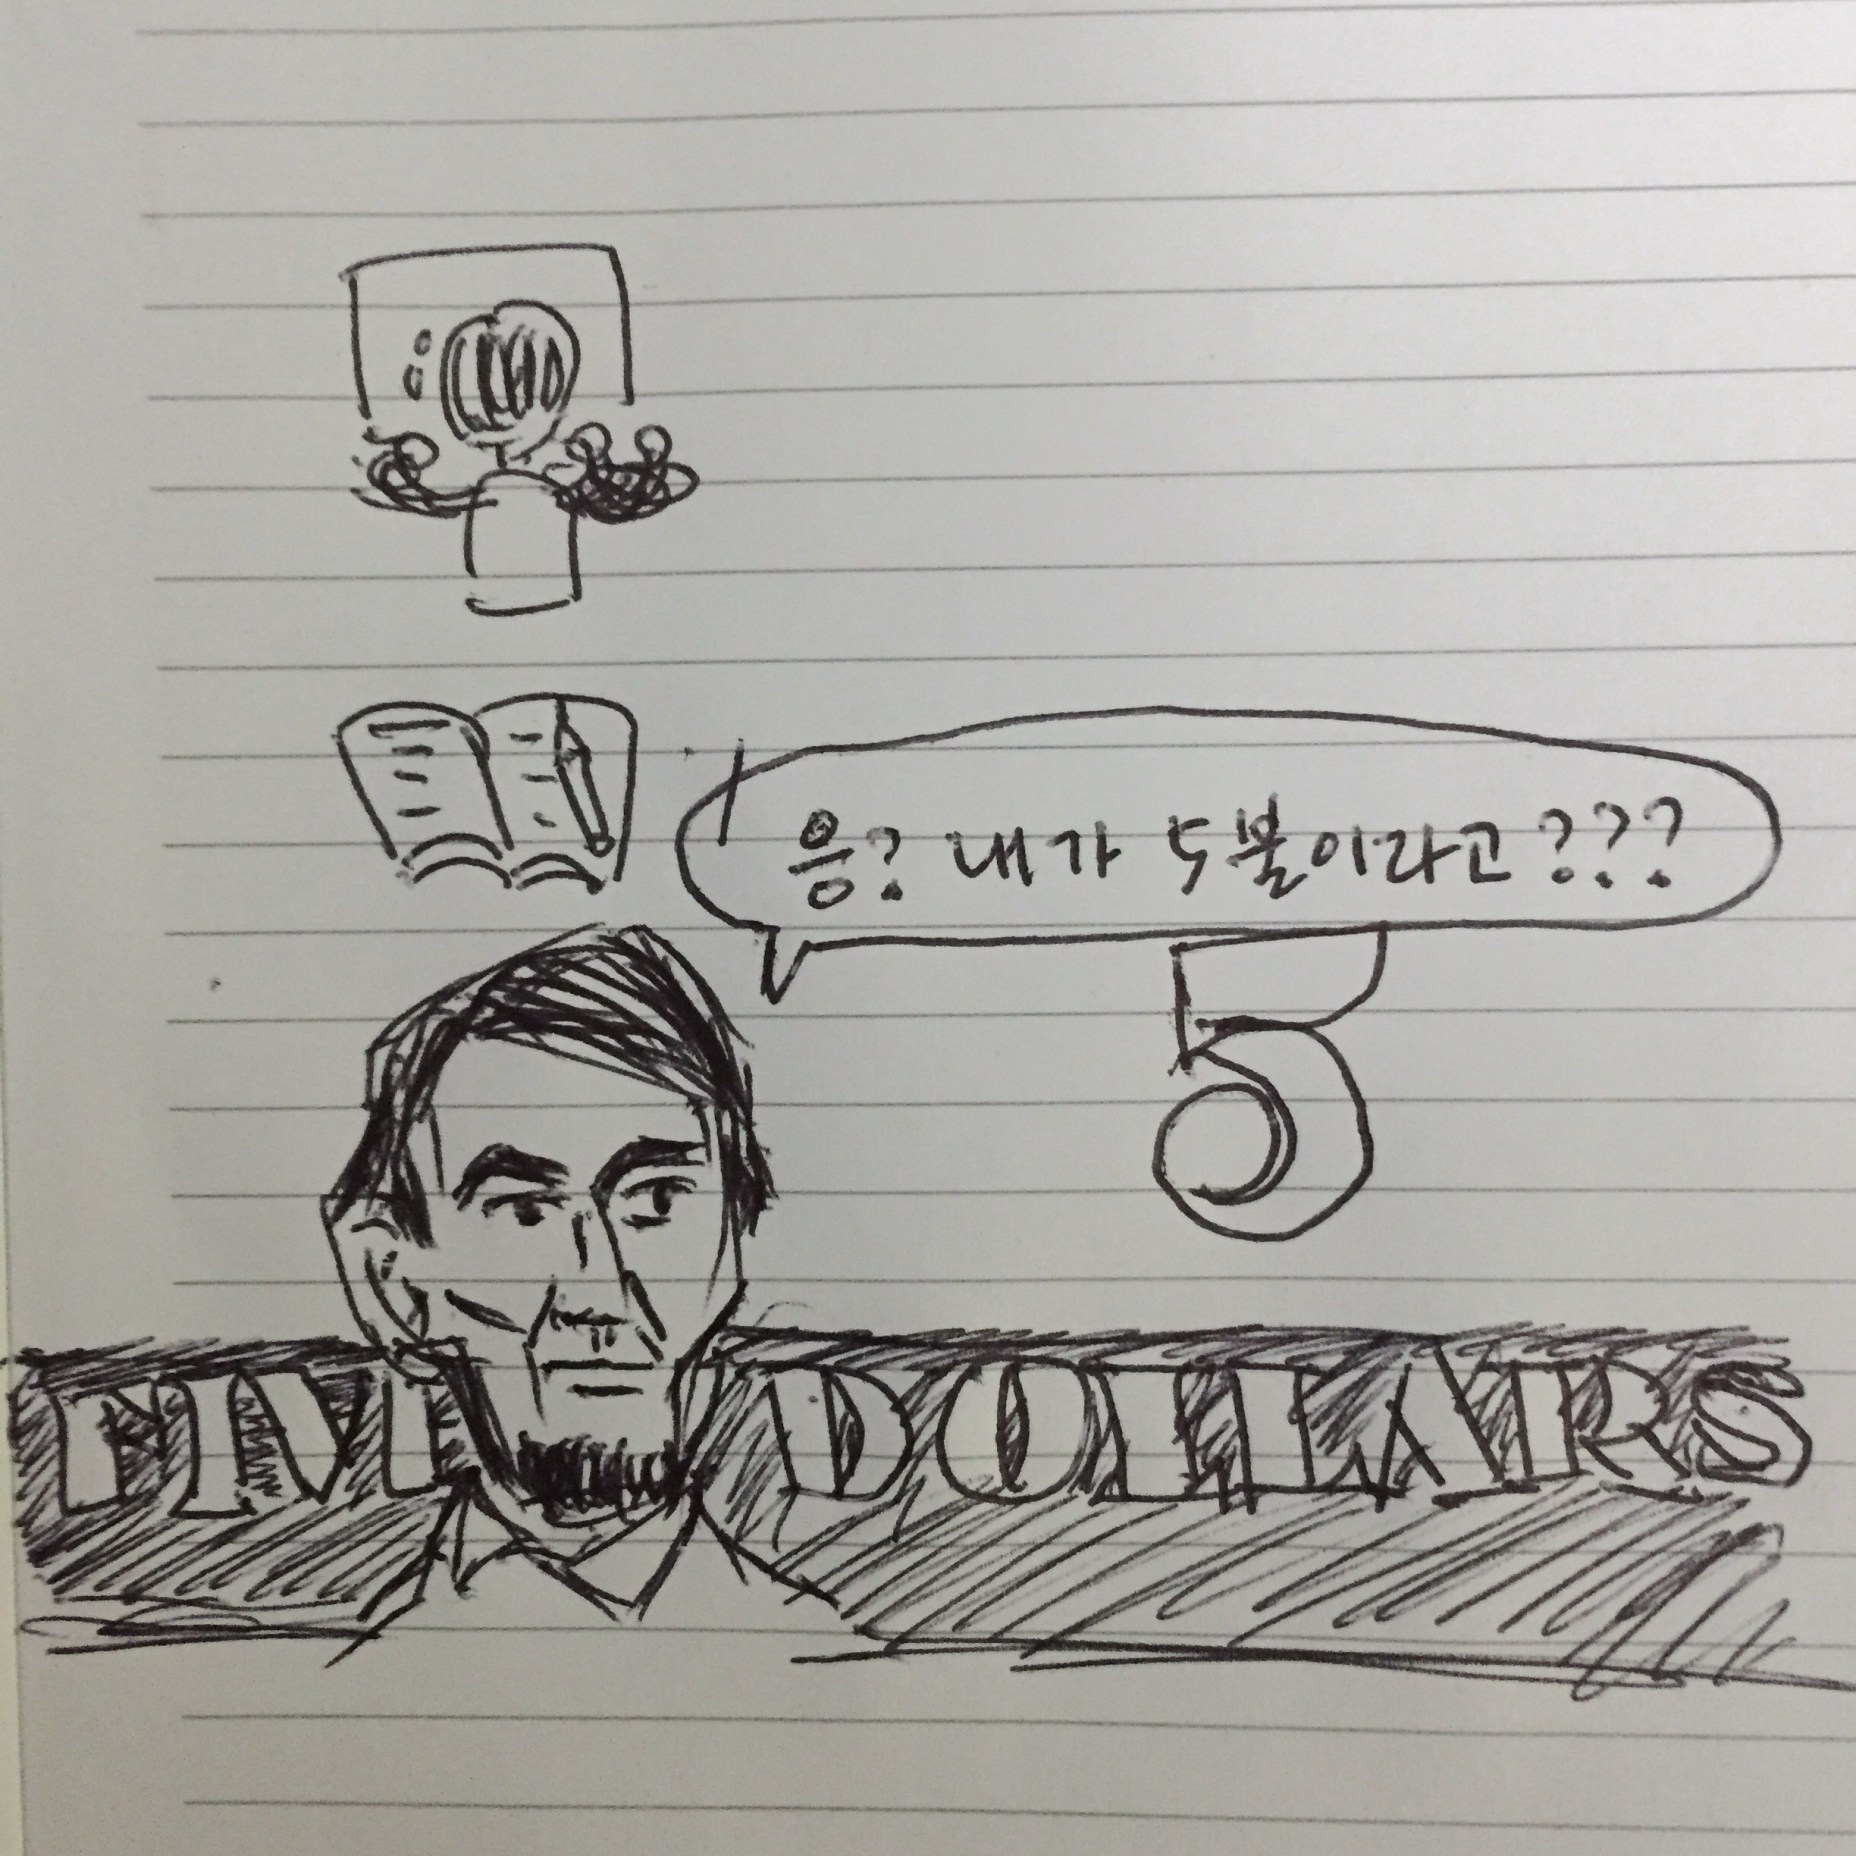 응? 내가 5불이라고???
5
FIVE DOLLARS